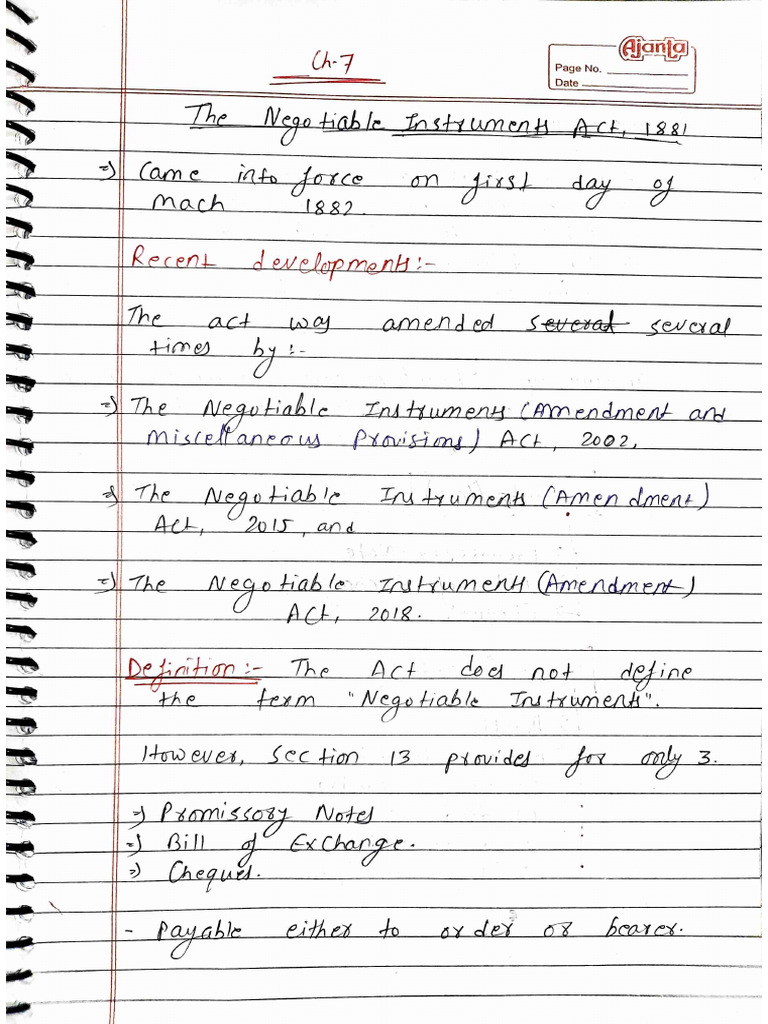 Ch-7
Ajanta
Page No.
Date
The Negotiable Instruments Act, 1881
=) Came into force on first day of
Mach 1882.
Recent developments:-
The act was amended several several
times by:-
=) The Negotiable Instruments (Amendment and
Miscellaneous Provisions) Act, 2002,
=) The Negotiable Instruments (Amendment)
Act, 2015, and
=) The Negotiable Instruments (Amendment)
Act, 2018.
Definition:- The Act does not define
the term "Negotiable Instruments".
However, section 13 provides for only 3.
=) Promissory Notes
=) Bill of Exchange.
=) Cheques.
- Payable either to order or bearer.